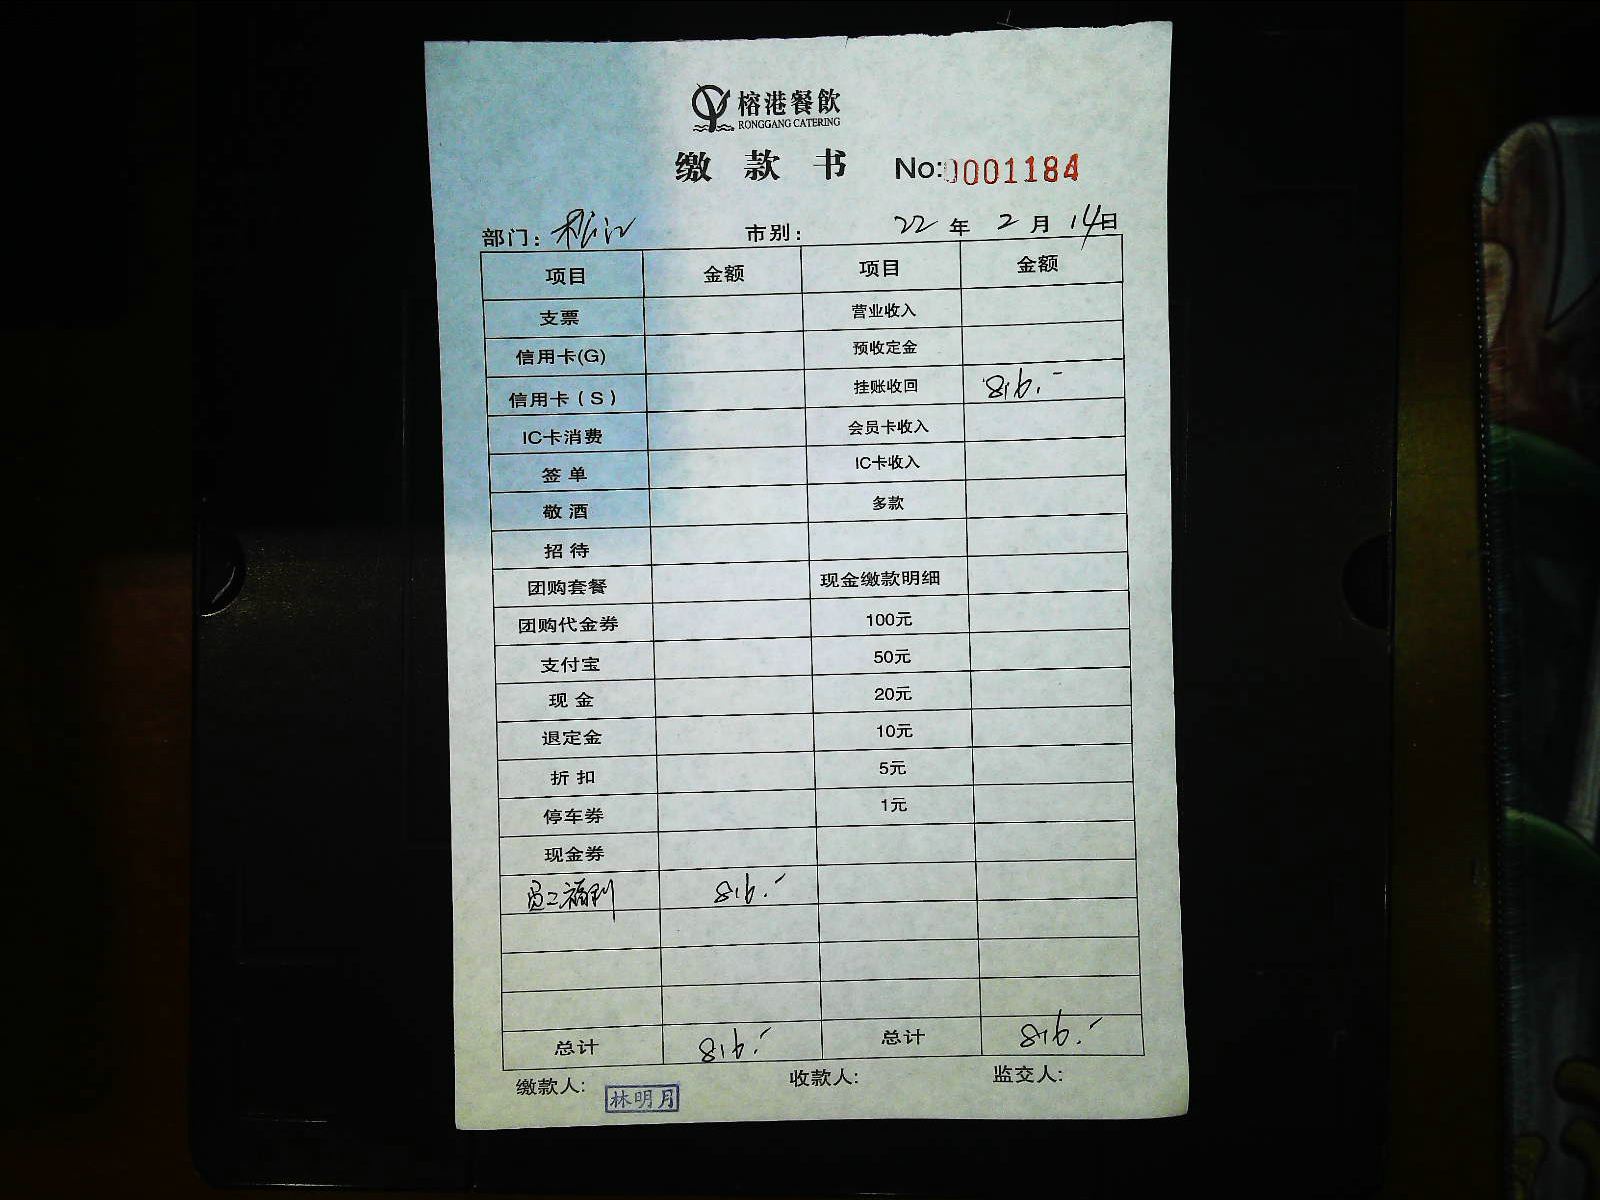 榕港餐飲
RONGGANG CATERING
缴款书 No:0001184
部门: 松江 市别: 22年2月14日
项目 金额 项目 金额
支票 营业收入
信用卡(G) 预收定金
信用卡(S) 挂账收回 816.-
IC卡消费 会员卡收入
签单 IC卡收入
敬酒 多款
招待
团购套餐 现金缴款明细
团购代金券 100元
支付宝 50元
现金 20元
退定金 10元
折扣 5元
停车券 1元
现金券
员工福利 816.-
总计 816.- 总计 816.-
缴款人: 林明月 收款人: 监交人: